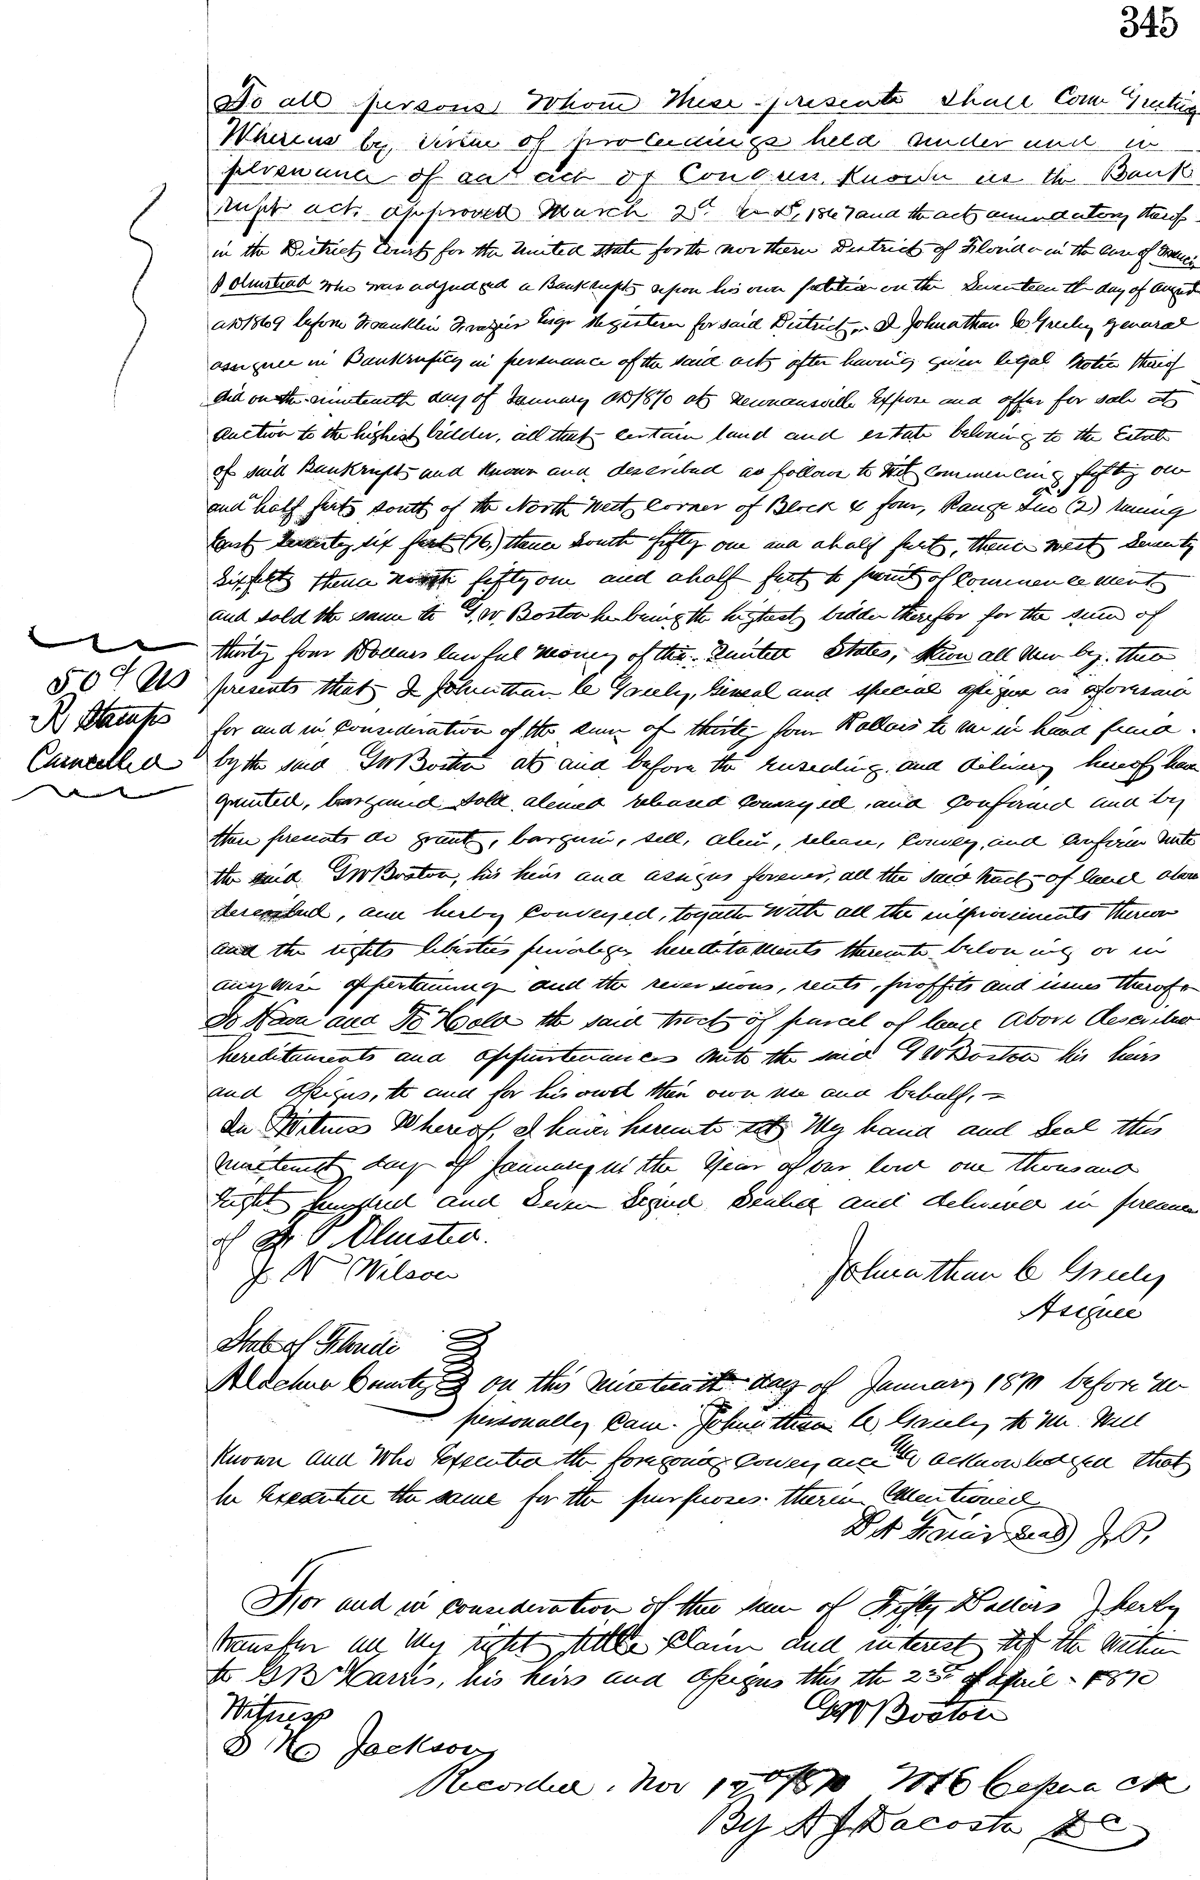 345
To all persons Whom these presents shall Come Greeting
Whereas by virtue of proceedings held under and in
persuance of an act of Congress Known as the Bank
rupt act. approved March 2d 1867 and the acts amendatory thereof
in the District Court for the United State for the northern District of Florida in the case of Francis
P Olmstead who was adjudged a Bankrupt upon his own petition on the Seventeenth day of August
AD 1869 before Franklin Frazier Esqr Register for said District, I Johnathan C Greely general
assignee in Bankruptcy in persuance of the said act after having given legal Notice thereof
did on the nineteenth day of January AD 1870 at Newnansville Expose and offer for sale at
auction to the highest bidder, all that certain land and estate beloning to the Estate
of said Bankrupt and Known and described as follows to Wit commencing fifty one
and a half feet south of the North West Corner of Block 4 four, Range Two (2) runing
East Seventy six feet (76) thence South fifty one and a half feet, thence west Seventy
Six feet thence north fifty one and a half feet to point of commencement
and sold the same to G. W. Boston he being the highest bidder therefor for the sum of
thirty four Dollars lawful money of the United States, Know all Men by these
presents that I Johnathan C Greely, General and special assignee as aforesaid
for and in consideration of the sum of thirty four Dollars to me in hand paid
by the said GW Boston at and before the ensealing and delivery hereof have
granted, bargained sold aliened released conveyed, and confirmed and by
these presents do grant, bargain, sell, alien, release, convey, and confirm unto
the said GW Boston, his heirs and assigns forever, all the said tract of land above
described, and herby conveyed, together with all the improvements thereon
and the rights liberties privileges hereditaments thereunto beloning or in
any wise appertaining and the reversions, rents, proffits and issues thereof
To Have and To Hold the said tract of parcel of land Above described
hereditaments and appurtenances unto the said G W Boston his heirs
and assigns, to and for his own their own use and behalf.
In Witness Whereof, I have hereunto set My hand and Seal this
nineteenth day of January in the Year of our lord one thousand
Eight hundred and Seven Signed Sealed and delivered in presence
of F. P. Olmsted.
J N Wilson
Johnathan C Greely
Asignee
50 c US
R Stamps
Cancelled
State of Florida
Alachua County on this nineteenth day of January 1870 before me
personally Came Johnathan C. Greely to me Well
Known and Who Executed the foregoing conveyance & acknowledged that
he Executed the same for the purposes therein Mentioned
Seal J. P.
For and in consideration of the sum of Fifty Dollars I herby
transfer all My right tittle Claim and interest of the within
to G B Harris, his heirs and assigns this the 23rd of April 1870
Witness
GW Boston
S H Jackson
Recorded. Nov 1870
By A J Dacosta DC